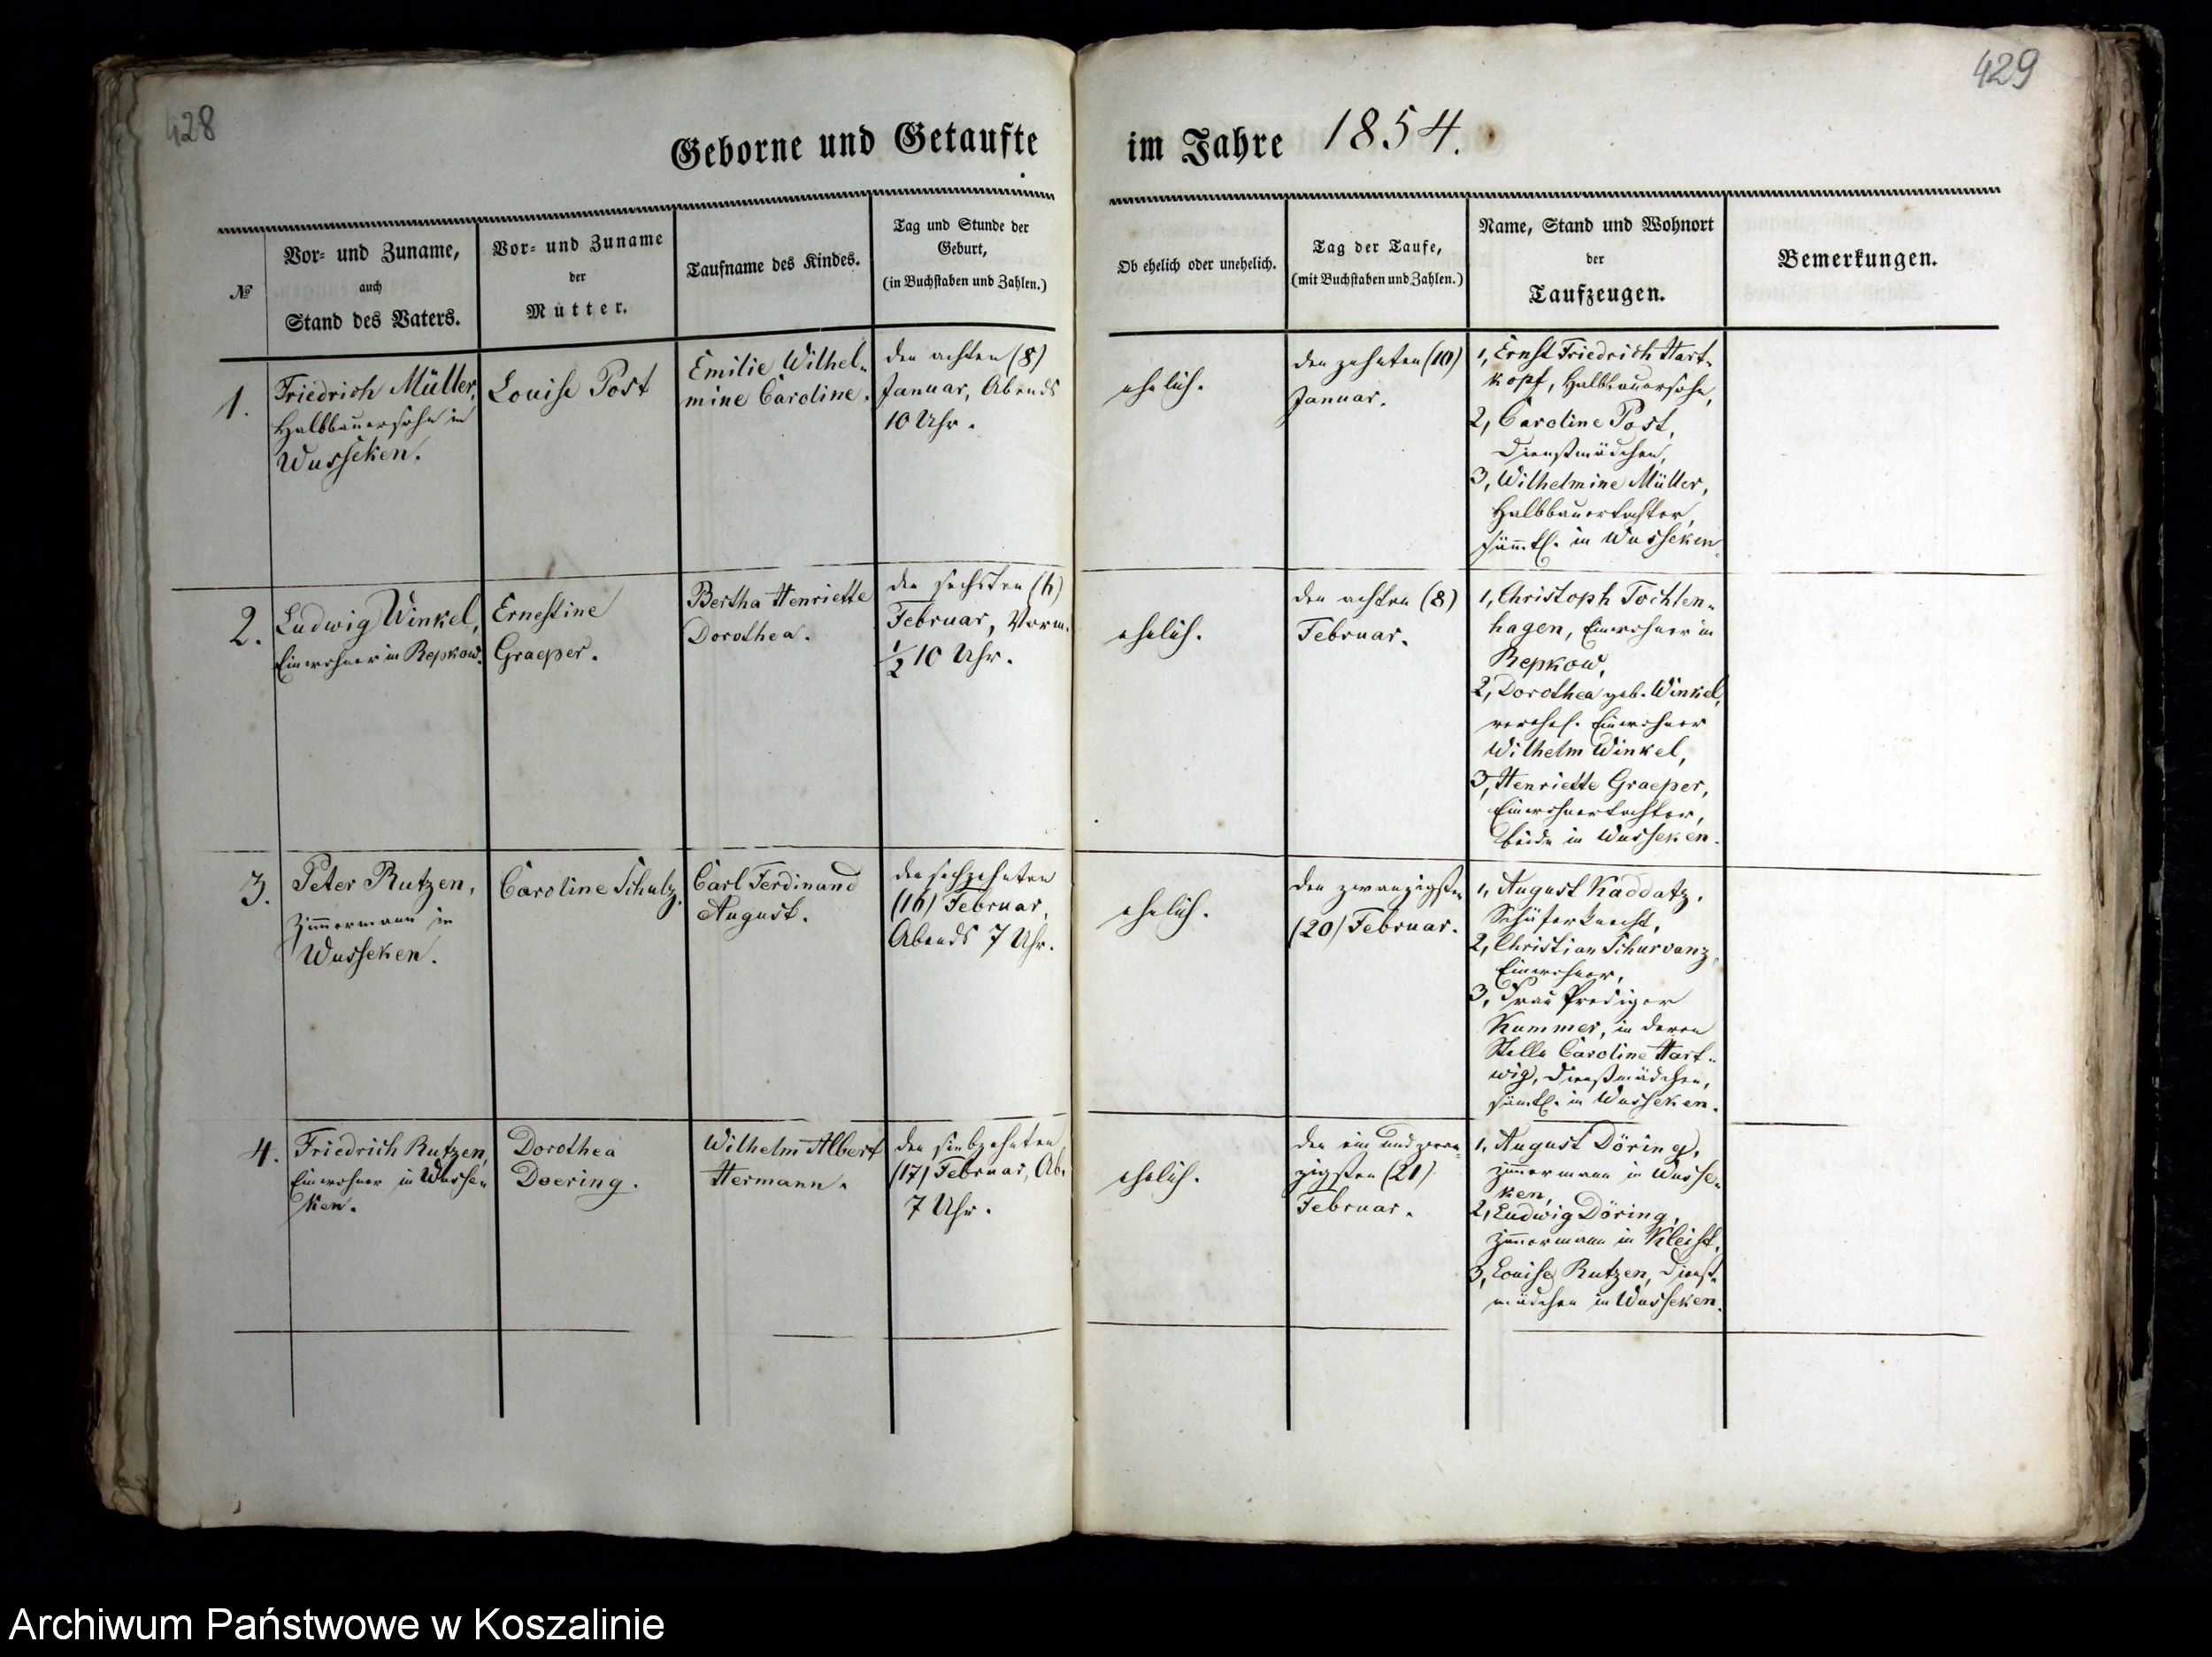 428
429
Geborne und Getaufte
im Jahre 1854.
№
Vor- und Zuname,
auch
Stand des Vaters.
Vor- und Zuname
der
Mütter.
Taufname des Kindes.
Tag und Stunde der
Geburt,
(in Buchstaben und Zahlen.)
Ob ehelich oder unehelich.
Tag der Taufe,
(mit Buchstaben und Zahlen.)
Name, Stand und Wohnort
der
Taufzeugen.
Bemerkungen.
1.
Friedrich Müller,
Halbbauersohn in
Wusseken.
Louise Post
Emilie Wilhel-
mine Caroline.
den achten (8)
Januar, Abends
10 Uhr.
ehelich.
den zehnten (10)
Januar.
1, Ernst Friedrich Hart-
kopf, Halbbauersohn,
2, Caroline Post,
Dienstmädchen,
3, Wilhelmine Müller,
Halbbauertochter,
sämtl. in Wusseken.
2.
Ludwig Winkel,
Einwohner in Repkow.
Ernestine
Graeper.
Bertha Henriette
Dorothea.
den sechsten (6)
Februar, Vorm.
1/2 10 Uhr.
ehelich.
den achten (8)
Februar.
1, Christoph Tochten-
hagen, Einwohner in
Repkow,
2, Dorothea geb. Winkel,
verehel. Einwohner
Wilhelm Winkel,
3, Henriette Graeper,
Einwohnertochter,
beide in Wusseken.
3.
Peter Rutzen,
Zimmermann in
Wusseken.
Caroline Schulz.
Carl Ferdinand
August.
den sechzehnten
(16) Februar,
Abends 7 Uhr.
ehelich.
den zwanzigsten
(20) Februar.
1, August Kaddatz,
Schäferknecht,
2, Christian Schurvanz,
Einwohner,
3, Frau Prediger
Kummer, in deren
Stelle Caroline Hart-
wig, Dienstmädchen,
sämtl. in Wusseken.
4.
Friedrich Rutzen,
Einwohner in Wusse-
ken.
Dorothea
Doering.
Wilhelm Albert
Hermann.
den siebzehnten
(17) Februar, Ab.
7 Uhr.
ehelich.
den ein und zwan-
zigsten (21)
Februar.
1, August Döring,
Zimmermann in Wusse-
ken,
2, Ludwig Döring,
Zimmermann in Kleist,
3, Louise Rutzen, Dienst-
mädchen in Wusseken.
Archiwum Państwowe w Koszalinie